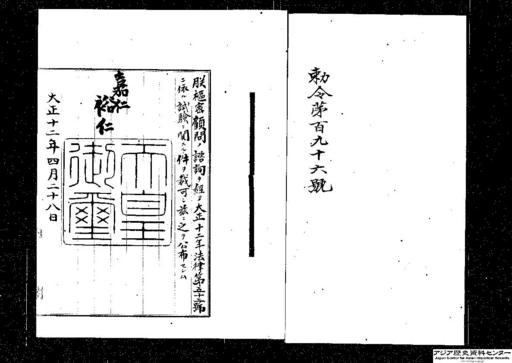 勅令第百九十六號
朕樞密顧問ノ諮詢ヲ經テ大正十二年法律第五十二號
ニ依ル試験ニ關スル件ヲ裁可シ茲ニ之ヲ公布セシム
嘉仁
裕仁
天皇御璽
大正十二年四月二十八日
アジア歴史資料センター
Japan Center for Asian Historical Records